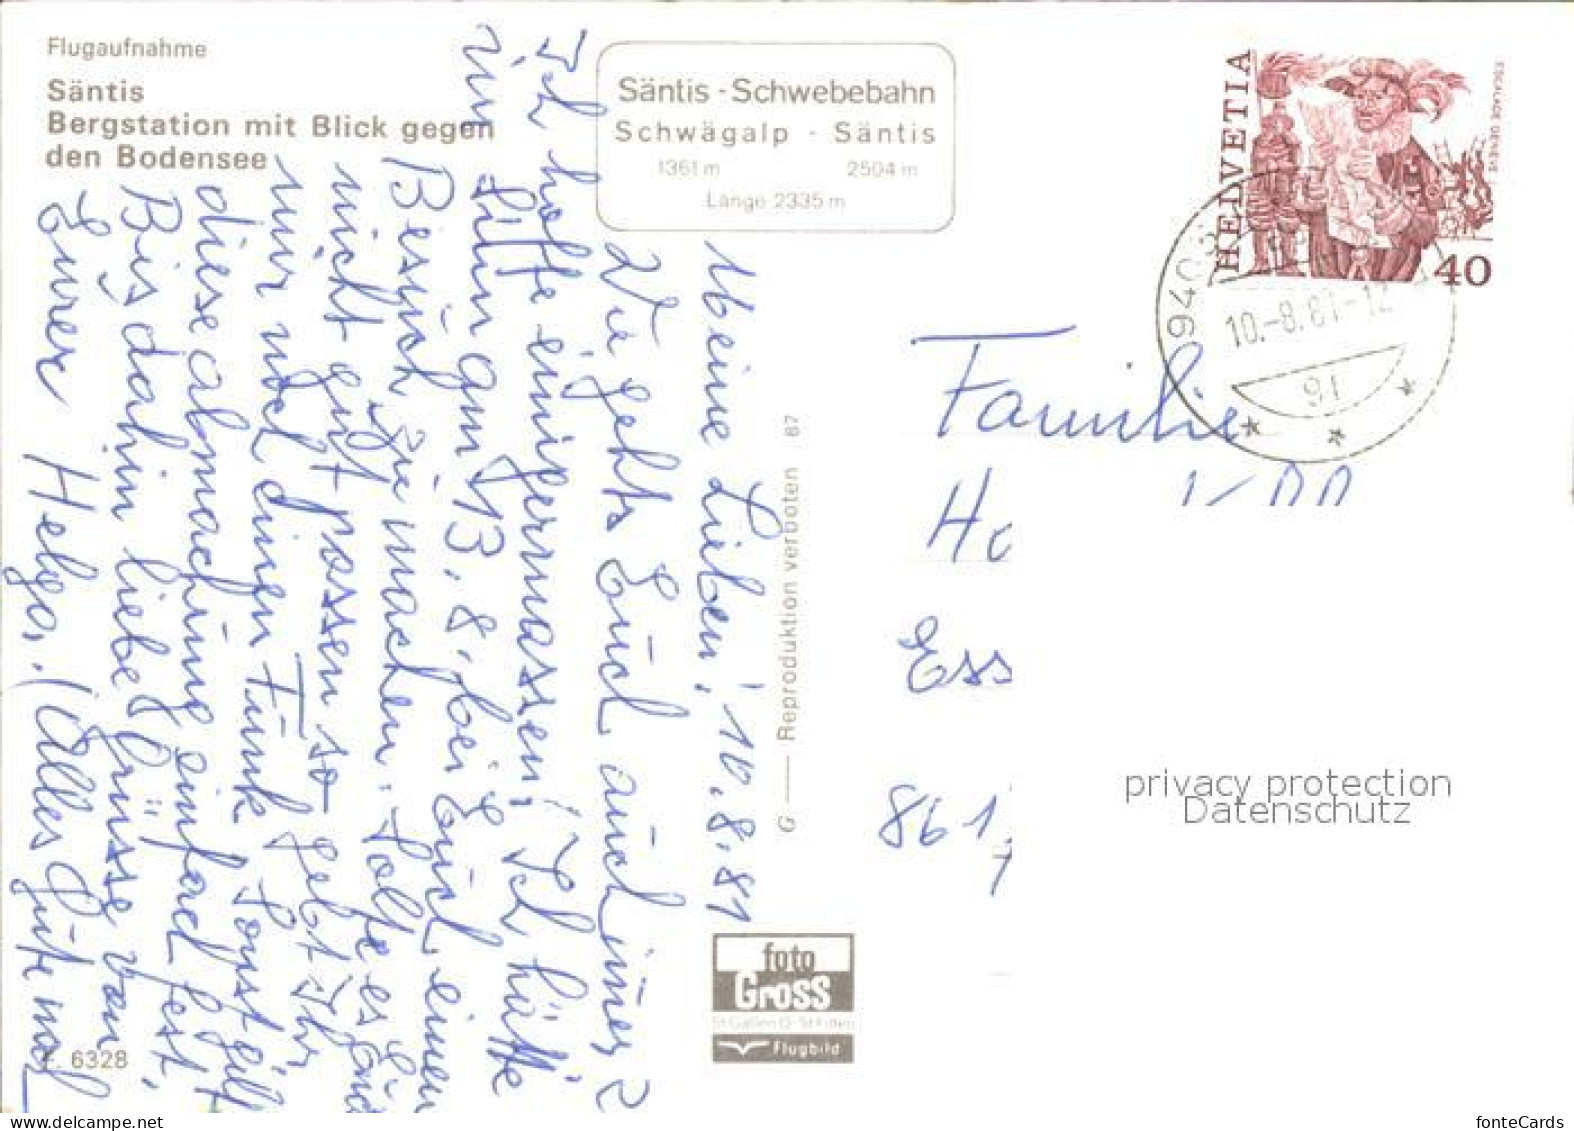 Flugaufnahme
Säntis
Bergstation mit Blick gegen
den Bodensee
Säntis - Schwebebahn
Schwägalp - Säntis
1361 m 2504 m
Länge 2335 m
HELVETIA
ESCALADE GENÈVE
40
9403
10.-8.81-12
91
Meine Lieben! 10.8.81
Wie gehts Euch auch immer?
Ich hoffe einigermassen! Ich hätte
im Sinn am 13. 8. bei Euch einen
Besuch zu machen. Sollte es Euch
nicht gut passen so gebt Ihr
mir noch einen Funk. Sonst gilt
diese abmachung einfach fest.
Bis dahin liebe Grüsse von
Eurer Helga. (Alles Gute noch
G — Reproduktion verboten 67
Familie
Ess
861
foto
Gross
St Gallen O - St Fiden
Flugbild
6328
privacy protection
Datenschutz
www.delcampe.net
fonteCards